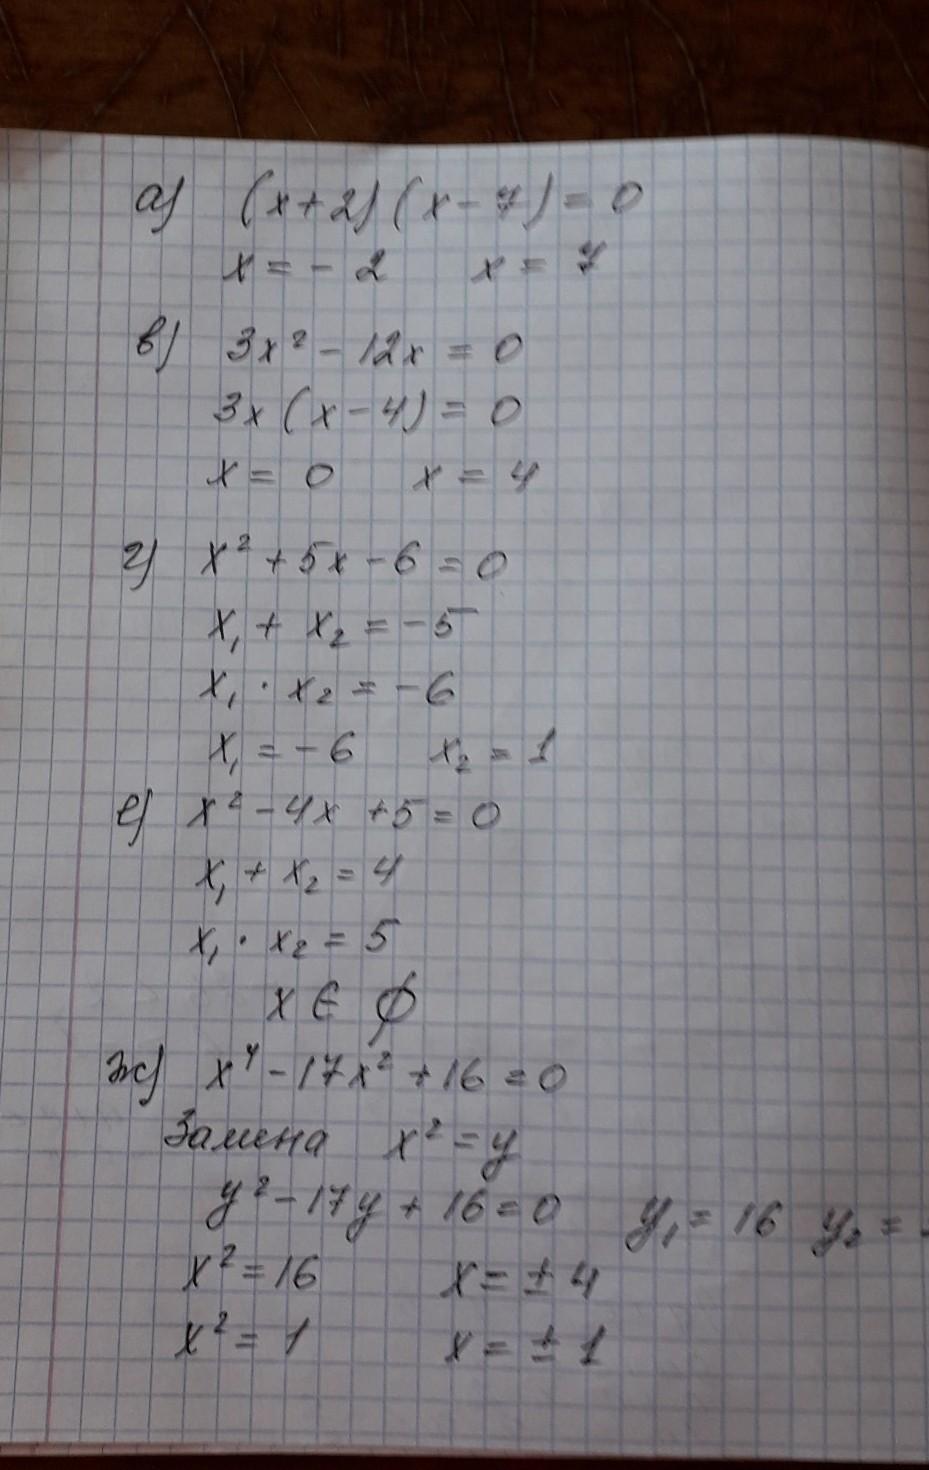 а) (x+2)(x-7)=0
x = - 2 x = 7
в) 3x² - 12x = 0
3x(x-4) = 0
x = 0 x = 4
г) x² + 5x - 6 = 0
x₁ + x₂ = -5
x₁ · x₂ = -6
x₁ = -6 x₂ = 1
е) x² - 4x + 5 = 0
x₁ + x₂ = 4
x₁ · x₂ = 5
x ∈ ∅
ж) x⁴ - 17x² + 16 = 0
Замена x² = y
y² - 17y + 16 = 0 y₁ = 16 y₂ =
x² = 16 x = ± 4
x² = 1 x = ± 1